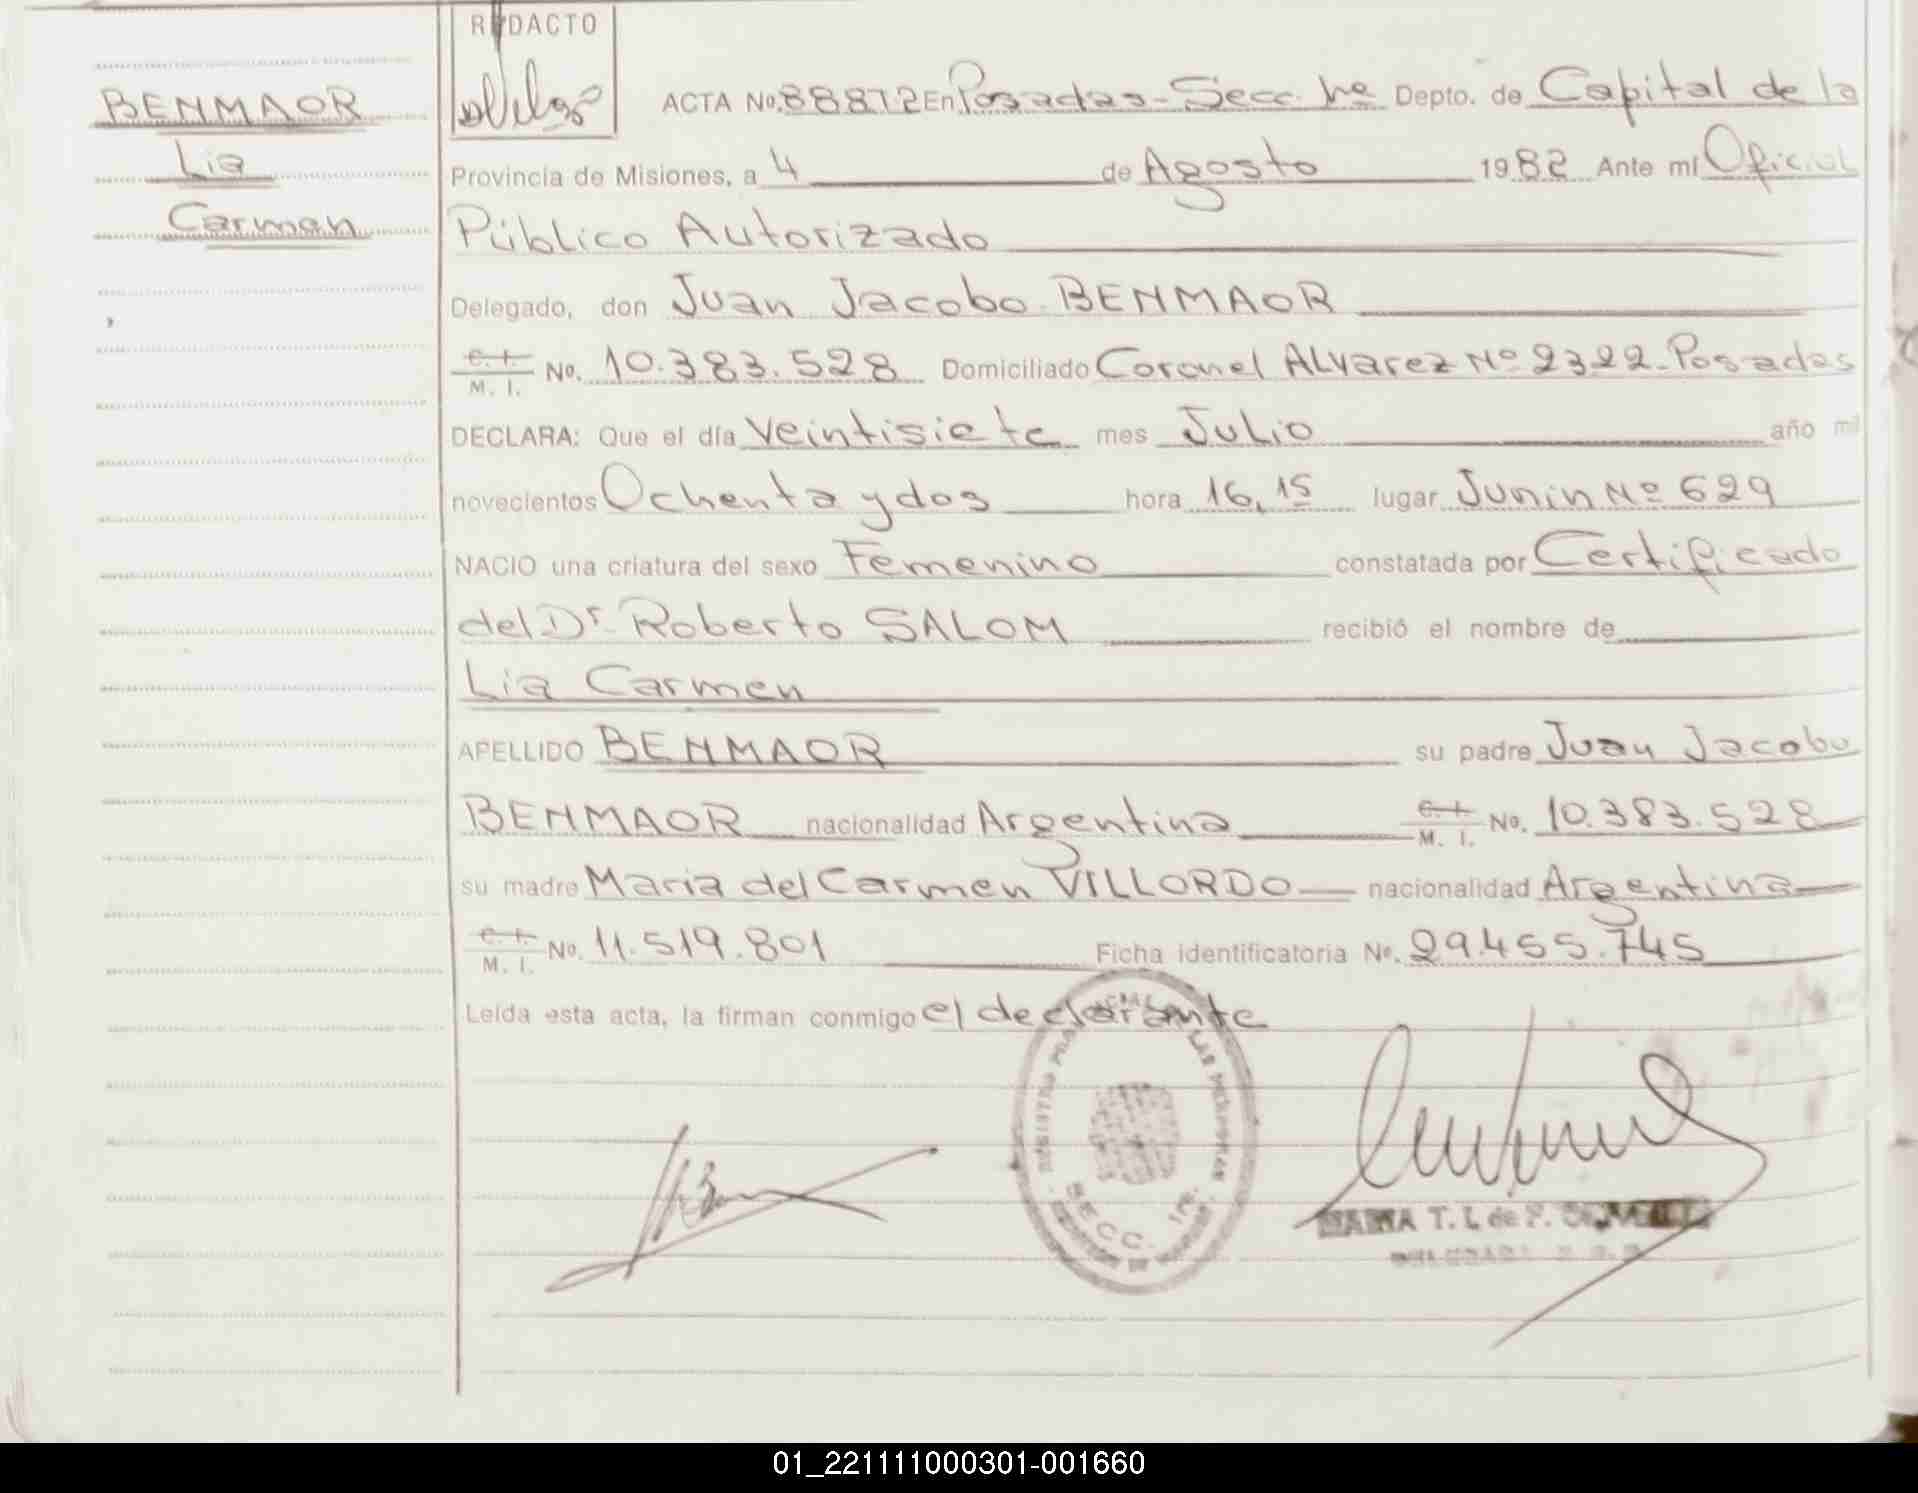 REDACTO
BENMAOR
Lia
Carmen
ACTA No. 88872 En Posadas - Secc. 1ra Depto. de Capital de la
Provincia de Misiones, a 4 de Agosto 1982 Ante mí Oficial
Público Autorizado
Delegado, don Juan Jacobo BENMAOR
C. I. / M. I. No. 10.383.528 Domiciliado Coronel ALVarez Nº 2322 - Posadas
DECLARA: Que el día Veintisiete mes Julio año mil
novecientos Ochenta y dos hora 16,15 lugar Junin Nº 629
NACIO una criatura del sexo Femenino constatada por Certificado
del Dr. Roberto SALOM recibió el nombre de
Lia Carmen
APELLIDO BENMAOR su padre Juan Jacobo
BENMAOR nacionalidad Argentina C. I. / M. I. No. 10.383.528
su madre Maria del Carmen VILLORDO nacionalidad Argentina
C. I. / M. I. No. 11.519.801 Ficha identificatoria No. 29.455.745
Leída esta acta, la firman conmigo el declarante
REGISTRO PROVINCIAL DE LAS PERSONAS
SECC. 1ra.
MARIA T. I. de P.
01_221111000301-001660